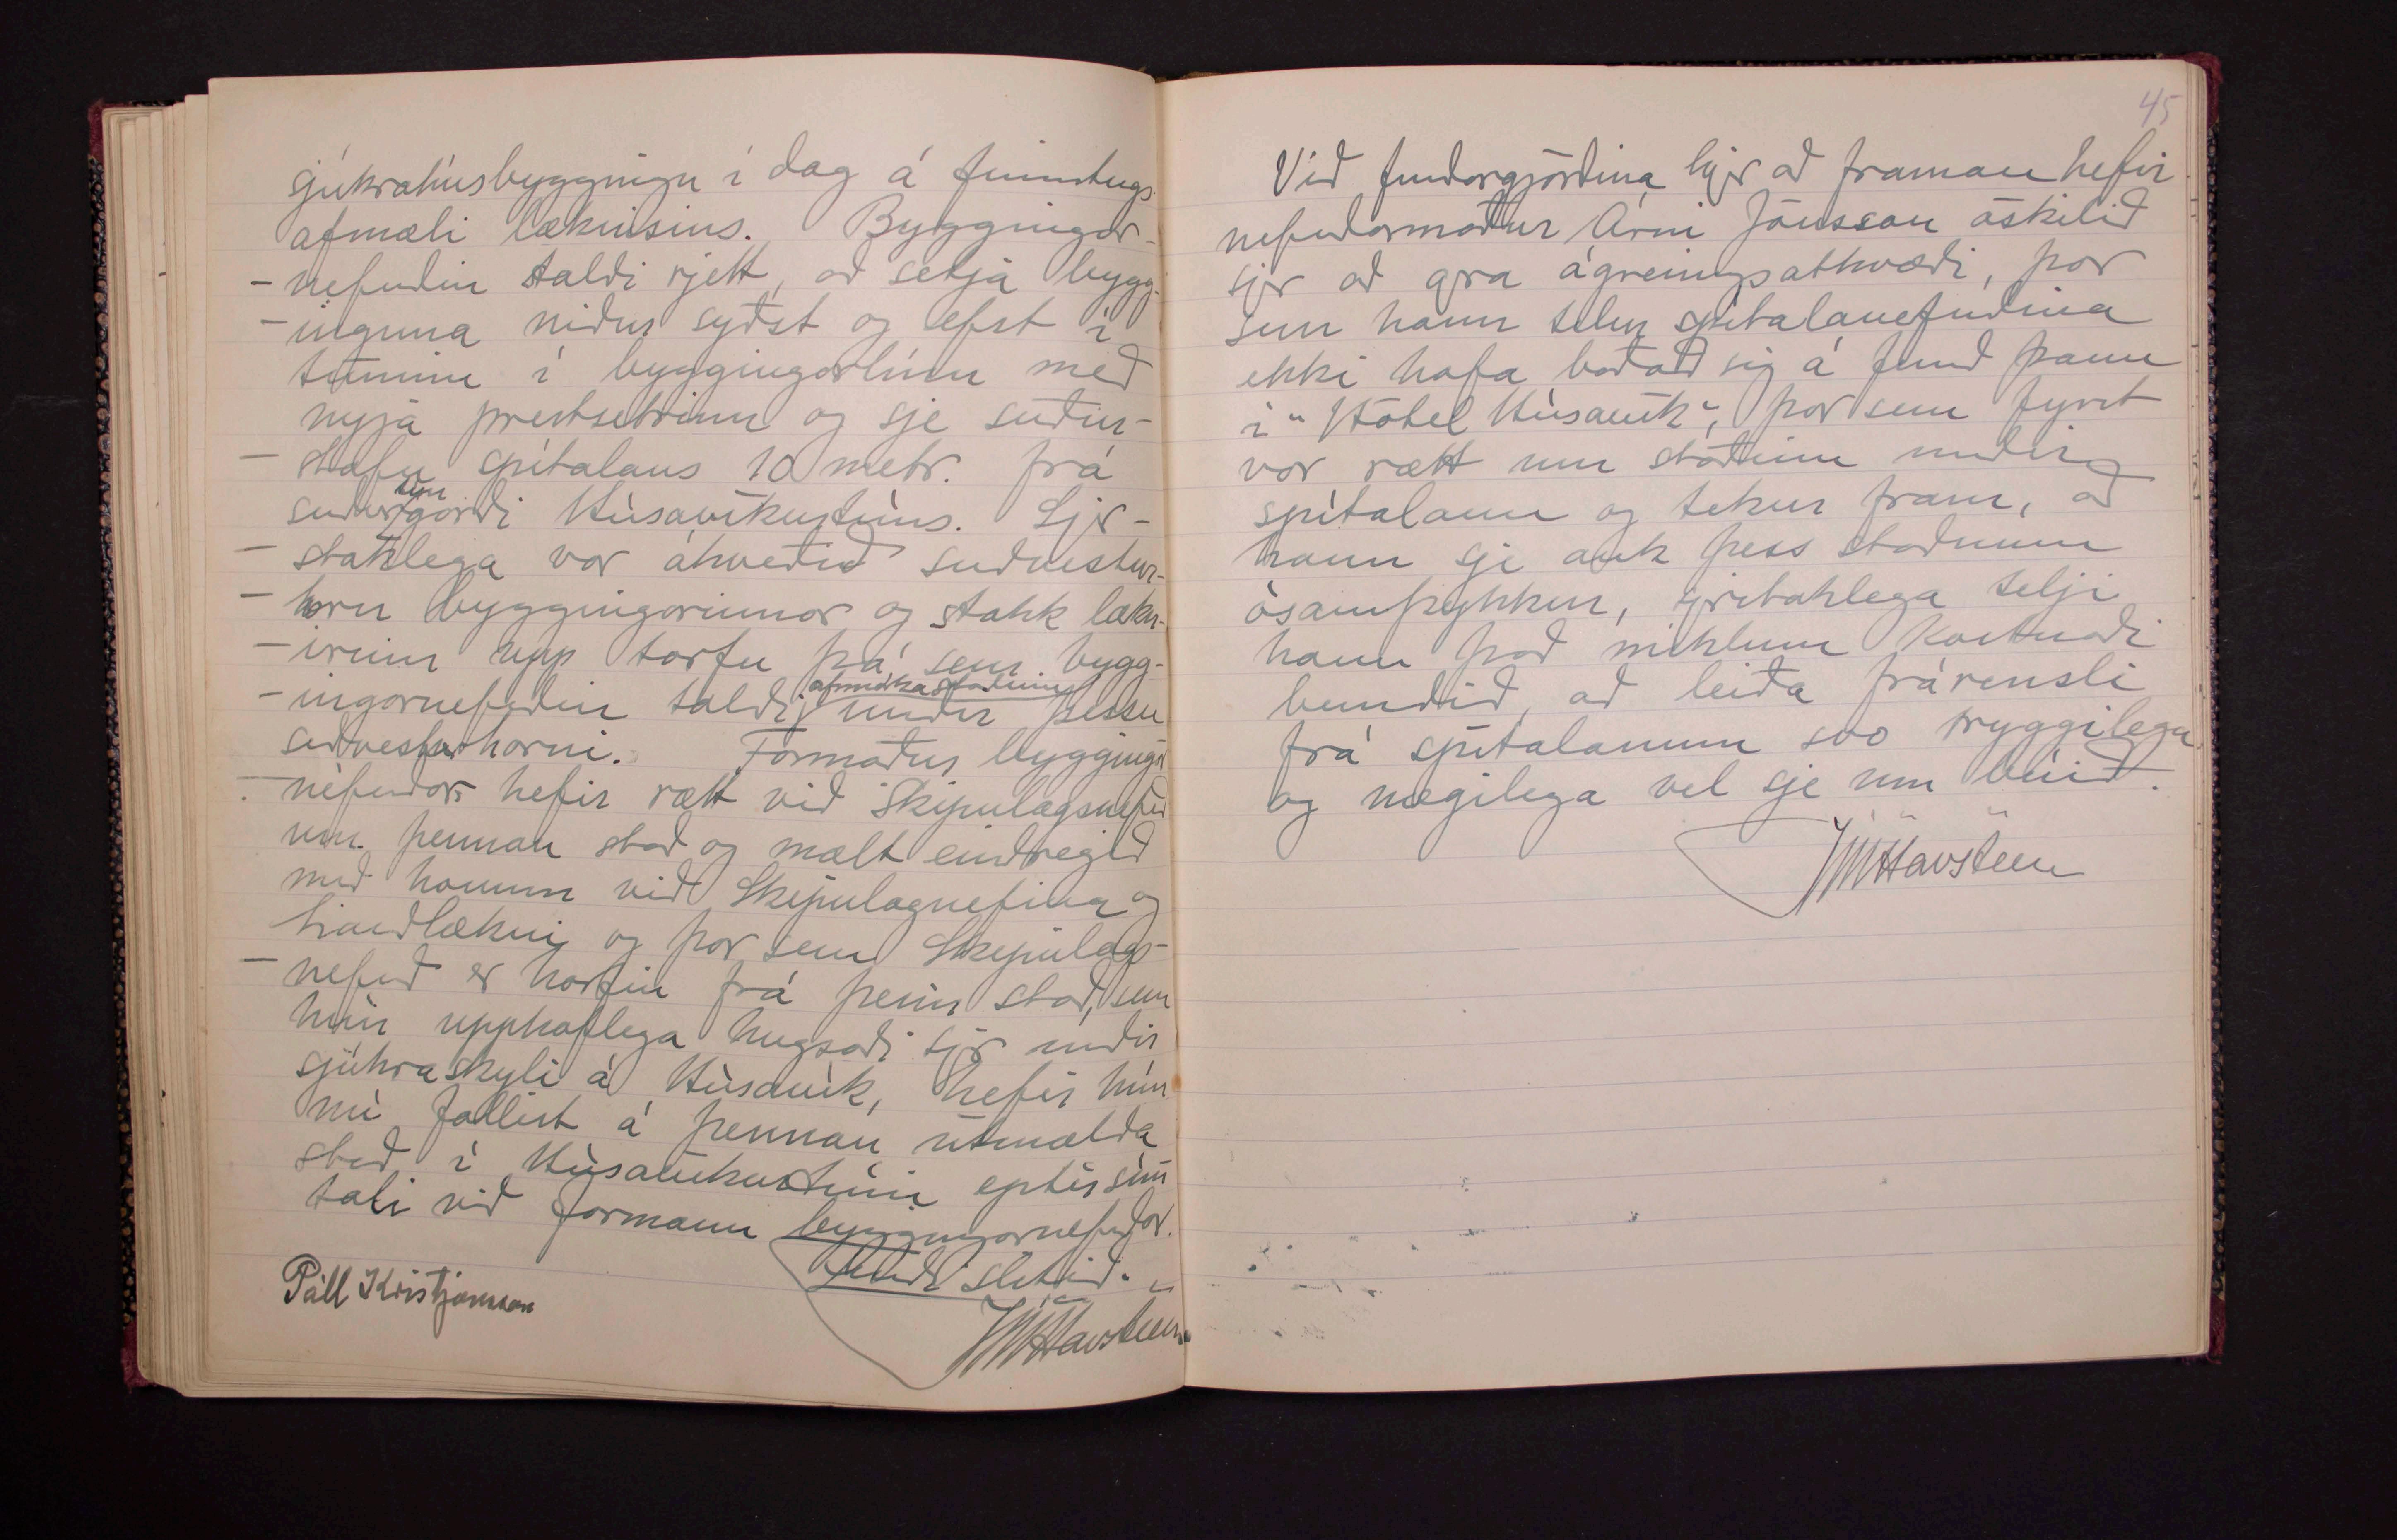 sjúkrahúsbyggingu í dag á fimmtugs-
afmæli læknisins. Byggingar-
- nefndin taldi rjett, að setja bygg-
- inguna niður syðst og efst í
túninu í byggingarlínu með
nýja prestsetrinu og sje suður-
- stafn spítalans 10 metr. frá
suður tún garði Húsavíkurtúns. Sjer-
- staklega var ákveðið suðvestur-
- horn byggingarinnar og stakk lækn-
- irinn upp torfu þá sem bygg-
- ingarnefndin taldi afmarka staðinn undir þessu
suðvesturhorni. Formaður bygginga
- nefndar hefir rætt við Skipulagsnefnd
um þennan stað og mælt eindregið
með honum við Skipulagnefina og
landlækni og þar sem Skipulags-
- nefnd er horfin frá þeim stað, sem
hún upphaflega hugsaði sjer undir
sjúkraskyli á Húsavík, hefir hún
nú fallist á þennan útmælda
stað í Húsavíkurtúni eptir sím
tali við formann byggingarnefndar.
Fundi slitið.
JMHavsteen
Páll Kristjánsson
45
Við fundargjörðina hjer að framan hefir
nefndarmaður Árni Jónsson áskilið
sjer að gera ágreiningsatkvæði, þar
sem hann telur spítalanefndina
ekki hafa boðað sig á fund þann
í "Hótel Húsavík", þar sem fyrst
var rætt um staðinn undir
spítalann og tekur fram, að
hann sje auk þess staðnum
ósamþykkur, sjerstaklega telji
hann það miklum kostnaði
bundið, að leiða frárensli
frá spítalanum svo tryggilega
og nægilega vel sje um búið.
JMHavsteen